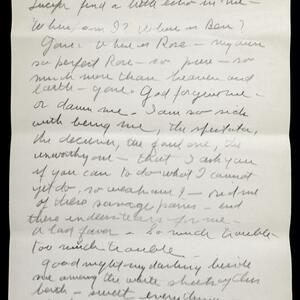 find a little echo in me -
"Where am I? Where is Ben?
Gone. Where is Rose - my own
so perfect Rose - so pure - so
much more than heaven and
earth - gone. God forgive me -
or damn me. I am so sick
with being me, the spectator,
the deceiver, the fond one, the
unworthy one - that I ask you
if you can to do what I cannot
yet do, so weak am I - rid me
of these savage pains - and
these for me -
a last favor - so much trouble -
too much trouble -
good night my darling beside
me among the white sheets of this
berth - sweet everything